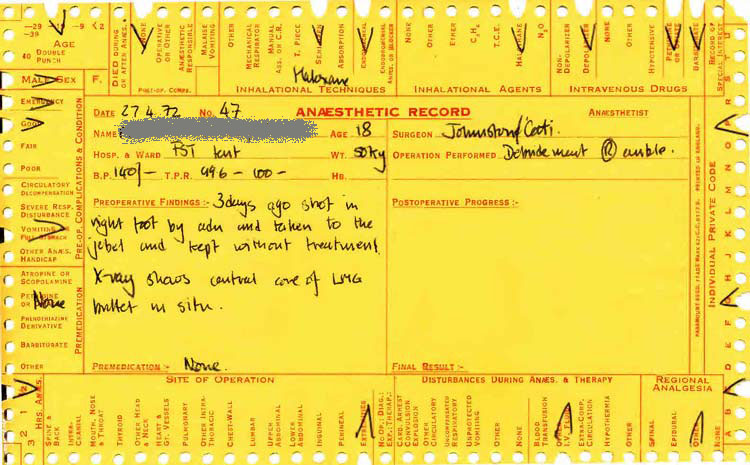 -29 -15 -9 < 2
-39
AGE
40 DOUBLE PUNCH
DIED DURING OR AFTER ANÆS.
NONE
OPERATIVE OR OTHER
ANÆSTHETIC RESPONSIBLE
MALAISE VOMITING
OTHER
MECHANICAL RESPIRATOR
MANUAL ASS. OR C.R.
T. PIECE
ABSORPTION
ENDOTRACHEAL
ENDOBRONCHIAL
NONE
OTHER
ETHER
C₃H₆
T.C.E.
HALOTHANE
N₂O
NON-DEPOLARIZER
DEPOLARIZER
NONE
OTHER
HYPOTENSIVE
BARBITURATE
RECORD OF SPECIAL INTEREST
Halosane
MALE SEX F.
POST-OP. COMPS.
INHALATIONAL TECHNIQUES
INHALATIONAL AGENTS
INTRAVENOUS DRUGS
EMERGENCY
GOOD
FAIR
POOR
CIRCULATORY DECOMPENSATION
SEVERE RESP. DISTURBANCE
VOMITING OR FULL STOMACH
OTHER ANÆS. HANDICAP
PRE-OP. COMPLICATIONS & CONDITION
ATROPINE OR SCOPOLAMINE
None
PHENOTHIAZINE DERIVATIVE
BARBITURATE
OTHER
PREMEDICATION
DATE 27.4.72 No. 47 ANÆSTHETIC RECORD ANÆSTHETIST
NAME AGE 18 SURGEON Johnstone/Coati.
HOSP. & WARD FST tent WT. 50Kg OPERATION PERFORMED Debridement (R) ankle.
B.P. 140/- T.P.R. 496 - 100 - HB.
PREOPERATIVE FINDINGS:- 3 days ago shot in
right foot by adu and taken to the
jebel and kept without treatment.
X-ray shows central core of LMG
bullet in situ.
PREMEDICATION:- None.
POSTOPERATIVE PROGRESS:-
FINAL RESULT:-
PRINTED IN ENGLAND.
INDIVIDUAL PRIVATE CODE
3 2 1 ½
HRS. ANÆS.
SITE OF OPERATION
DISTURBANCES DURING ANÆS. & THERAPY
REGIONAL ANALGESIA
SPINE & BACK
INTRA-CRANIAL
MOUTH, NOSE & THROAT
THYROID
OTHER HEAD & NECK
HEART & GT. VESSELS
PULMONARY
OTHER INTRA-THORACIC
CHEST-WALL
LUMBAR
UPPER ABDOMINAL
LOWER ABDOMINAL
INGUINAL
PERINEAL
EXTREMITIES
NO OP., DIAG., EXP., THERAP.
CARD. ARREST CONVULSION EXPLOSION
OTHER CIRCULATORY
UNCOMPENSATED RESPIRATORY
UNPROTECTED VOMITING
OTHER
NONE
BLOOD TRANSFUSION
I.V. FLUID
EXTRA-CORP. CIRCULATION
HYPOTHERMIA
OTHER
SPINAL
EPIDURAL
OTHER
NONE